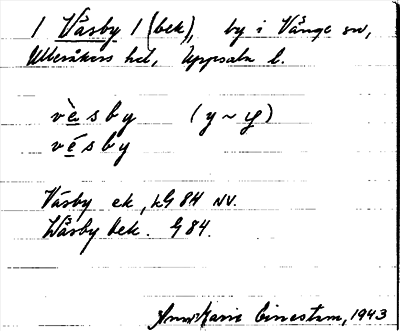 1 Våsby 1 (bek), by i Vänge sn,
Ulleråkers hd, Uppsala l.
vèsby (y ~ φ)
vésby
Väsby ek, LG 84 NV.
Wäsby bek. G 84.
AnnMarie 1943